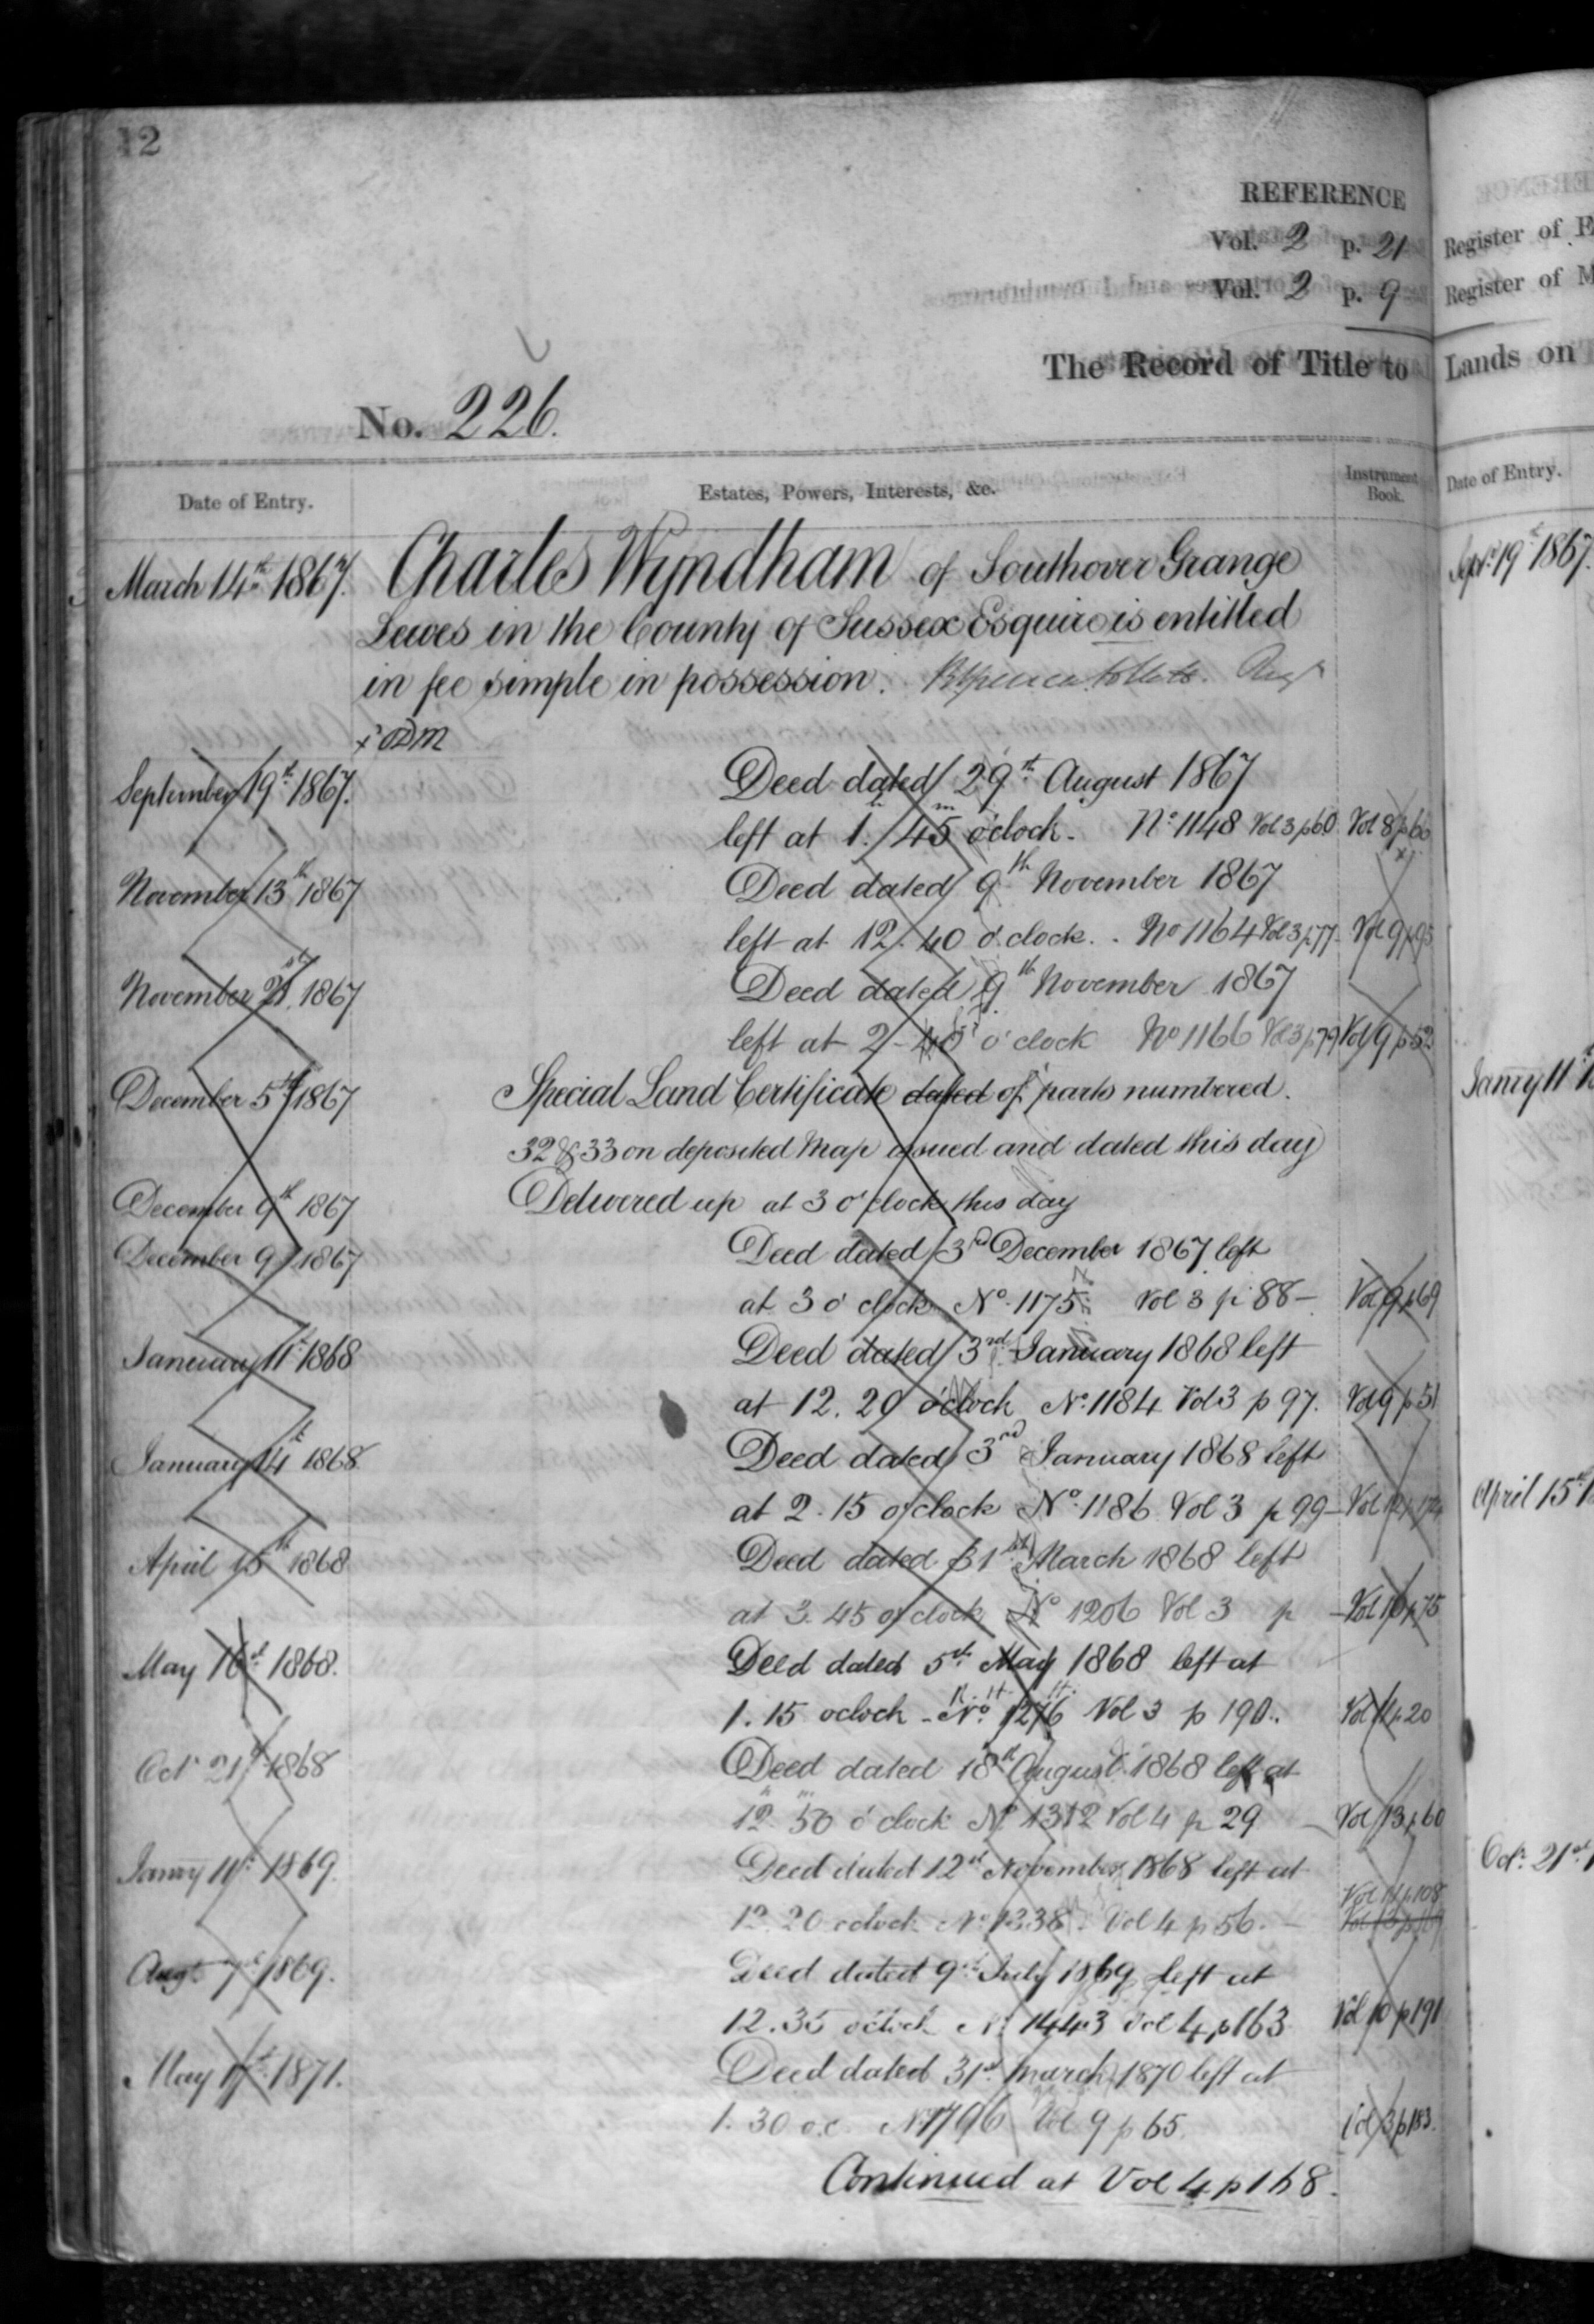 12
REFERENCE
Vol. 2 p. 21
Vol. 2 p. 9
The Record of Title to
No. 226.
Date of Entry. Estates, Powers, Interests, &c. Instrument Book.
March 14th 1867. Charles Wyndham of Southover Grange
Lewes in the County of Sussex Esquire is entitled
in fee simple in possession.
September 19th 1867. Deed dated 29th August 1867
left at 1.h 45m o'clock. No. 1148 Vol 3 p 60 Vol 8 p 60
November 13th 1867 Deed dated 9th November 1867
left at 12.40 o'clock. No 1164 Vol 3 p 77
November 21st 1867 Deed dated 9th November 1867
left at 2 o'clock No 1166 Vol 3 p 79 Vol 9 p 52
December 5th 1867 Special Land Certificate dated of parts numbered.
32 & 33 on deposited Map issued and dated this day
December 9th 1867 Delivered up at 3 o'clock this day
December 9 1867 Deed dated 3rd December 1867 left
at 3 o'clock No. 1175 Vol 3 p 88 — Vol 9 p 69
January 11th 1868 Deed dated 3rd January 1868 left
at 12.20 o'clock No. 1184 Vol 3 p 97. Vol 9 p 51
January 14th 1868 Deed dated 3rd January 1868 left
at 2.15 o'clock No. 1186 Vol 3 p 99 —
April 15th 1868 Deed dated 31st March 1868 left
at 3.45 o'clock No 1206 Vol 3 p — Vol 10 p 75
May 16th 1868. Deed dated 5th May 1868 left at
1.15 oclock — No. 1276 Vol 3 p 190. Vol 11 p 20
Octr 21st 1868 Deed dated 18th August 1868 left at
12.50 o'clock No 1312 Vol 4 p 29 — Vol 13 p 60
Janry 11th 1869. Deed dated 12th November 1868 left at
12.20 oclock No 1338. Vol 4 p 56. — Vol 11 p 108
Augt 7th 1869. Deed dated 9th July 1869 left at
12.35 o'clock No 1443 Vol 4 p 163 Vol 10 p 191
May 1871. Deed dated 31st March 1870 left at
1.30 o.c. No 1796 Vol 9 p 65. Vol 3 p 183.
Continued at Vol 4 p 168.
Register of E
Register of M
Lands on
Date of Entry.
Sepr. 19th 1867.
Janry 11th
April 15th
Octr. 21st